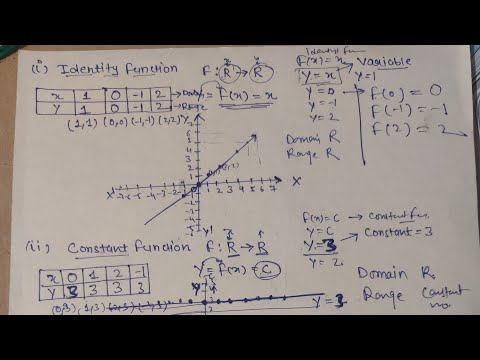 (i) Identity Function F: R → R
x 1 0 -1 2 → Domain
Y 1 0 -1 2 → Range
Y = F(x) = x
(1,1) (0,0) (-1,-1) (2,2)
Identity fun
F(x) = x
Y = x
Y = 0
Y = -1
Y = 2
Domain R
Range R
Variable
Y = 1
F(0) = 0
F(-1) = -1
F(2) = 2
X' -7 -6 -5 -4 -3 -2 -1 1 2 3 4 5 6 7 X
(ii) Constant Function F: R → R
Y = F(x) = C
x 0 1 2 -1
Y 3 3 3 3
(0,3) (1,3) (2,3) (-1,3)
Y = 3
F(x) = C → Constant fun.
Y = C
Y = 3 → Constant = 3
Y = 2
Domain R
Range Constant
no